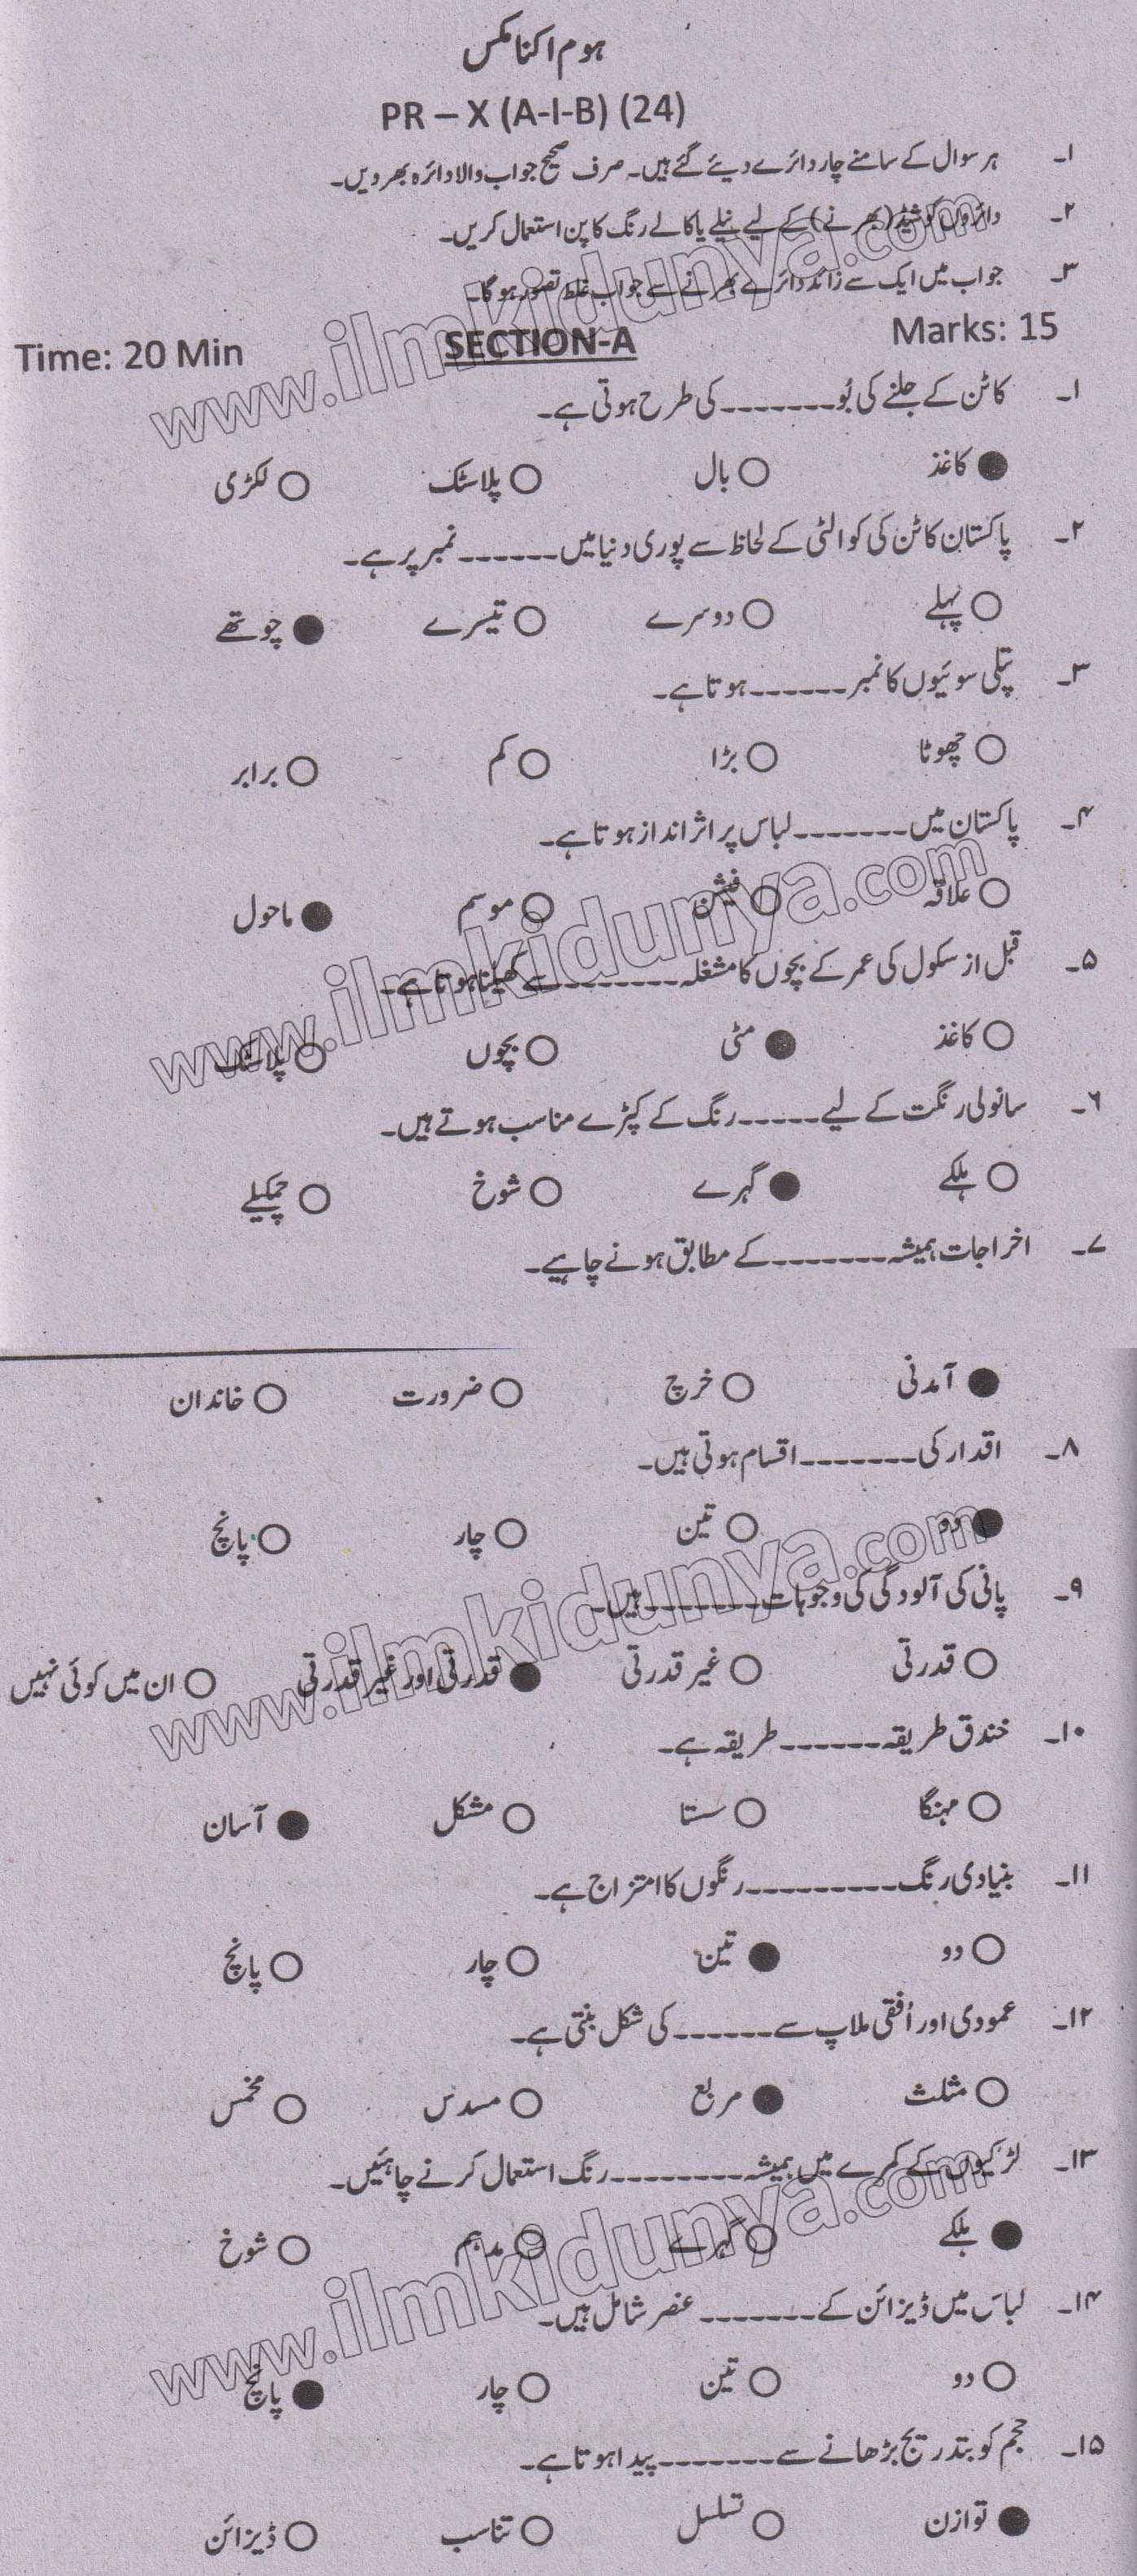 ہوم اکنامکس
PR – X (A-I-B) (24)
۱۔ ہر سوال کے سامنے چار دائرے دیئے گئے ہیں۔ صرف صحیح جواب والا دائرہ بھر دیں۔
۲۔ دائروں کو شیڈ (بھرنے) کے لیے نیلے یا کالے رنگ کا پن استعمال کریں۔
۳۔ جواب میں ایک سے زائد دائرے بھرنے سے جواب غلط تصور ہو گا۔
Time: 20 Min SECTION-A Marks: 15
www.ilmkidunya.com
۱۔ کاٹن کے جلنے کی بُو------- کی طرح ہوتی ہے۔
● کاغذ ○ بال ○ پلاسٹک ○ لکڑی
۲۔ پاکستان کاٹن کی کوالٹی کے لحاظ سے پوری دنیا میں------ نمبر پر ہے۔
○ پہلے ○ دوسرے ○ تیسرے ● چوتھے
۳۔ پتلی سوئیوں کا نمبر------ہوتا ہے۔
○ چھوٹا ○ بڑا ○ کم ○ برابر
۴۔ پاکستان میں-------لباس پر اثر انداز ہوتا ہے۔
○ علاقہ ○ فیشن ○ موسم ● ماحول
www.ilmkidunya.com
۵۔ قبل از سکول کی عمر کے بچوں کا مشغلہ--------سے کھیلنا ہوتا ہے۔
○ کاغذ ● مٹی ○ بچوں ○ پلاسٹک
۶۔ سانولی رنگت کے لیے-----رنگ کے کپڑے مناسب ہوتے ہیں۔
○ ہلکے ● گہرے ○ شوخ ○ چمکیلے
۷۔ اخراجات ہمیشہ-------کے مطابق ہونے چاہیے۔
● آمدنی ○ خرچ ○ ضرورت ○ خاندان
۸۔ اقدار کی-------اقسام ہوتی ہیں۔
● دو ○ تین ○ چار ○ پانچ
www.ilmkidunya.com
۹۔ پانی کی آلودگی کی وجوہات--------ہیں۔
○ قدرتی ○ غیر قدرتی ● قدرتی اور غیر قدرتی ○ ان میں کوئی نہیں
۱۰۔ خندق طریقہ------طریقہ ہے۔
○ مہنگا ○ سستا ○ مشکل ● آسان
۱۱۔ بنیادی رنگ---------رنگوں کا امتزاج ہے۔
○ دو ● تین ○ چار ○ پانچ
۱۲۔ عمودی اور اُفقی ملاپ سے------کی شکل بنتی ہے۔
○ مثلث ● مربع ○ مسدس ○ مخمس
۱۳۔ لڑکیوں کے کمرے میں ہمیشہ--------رنگ استعمال کرنے چاہئیں۔
● ہلکے ○ گہرے ○ مدہم ○ شوخ
www.ilmkidunya.com
۱۴۔ لباس میں ڈیزائن کے-------عنصر شامل ہیں۔
○ دو ○ تین ○ چار ● پانچ
۱۵۔ حجم کو بتدریج بڑھانے سے-------پیدا ہوتا ہے۔
● توازن ○ تسلسل ○ تناسب ○ ڈیزائن